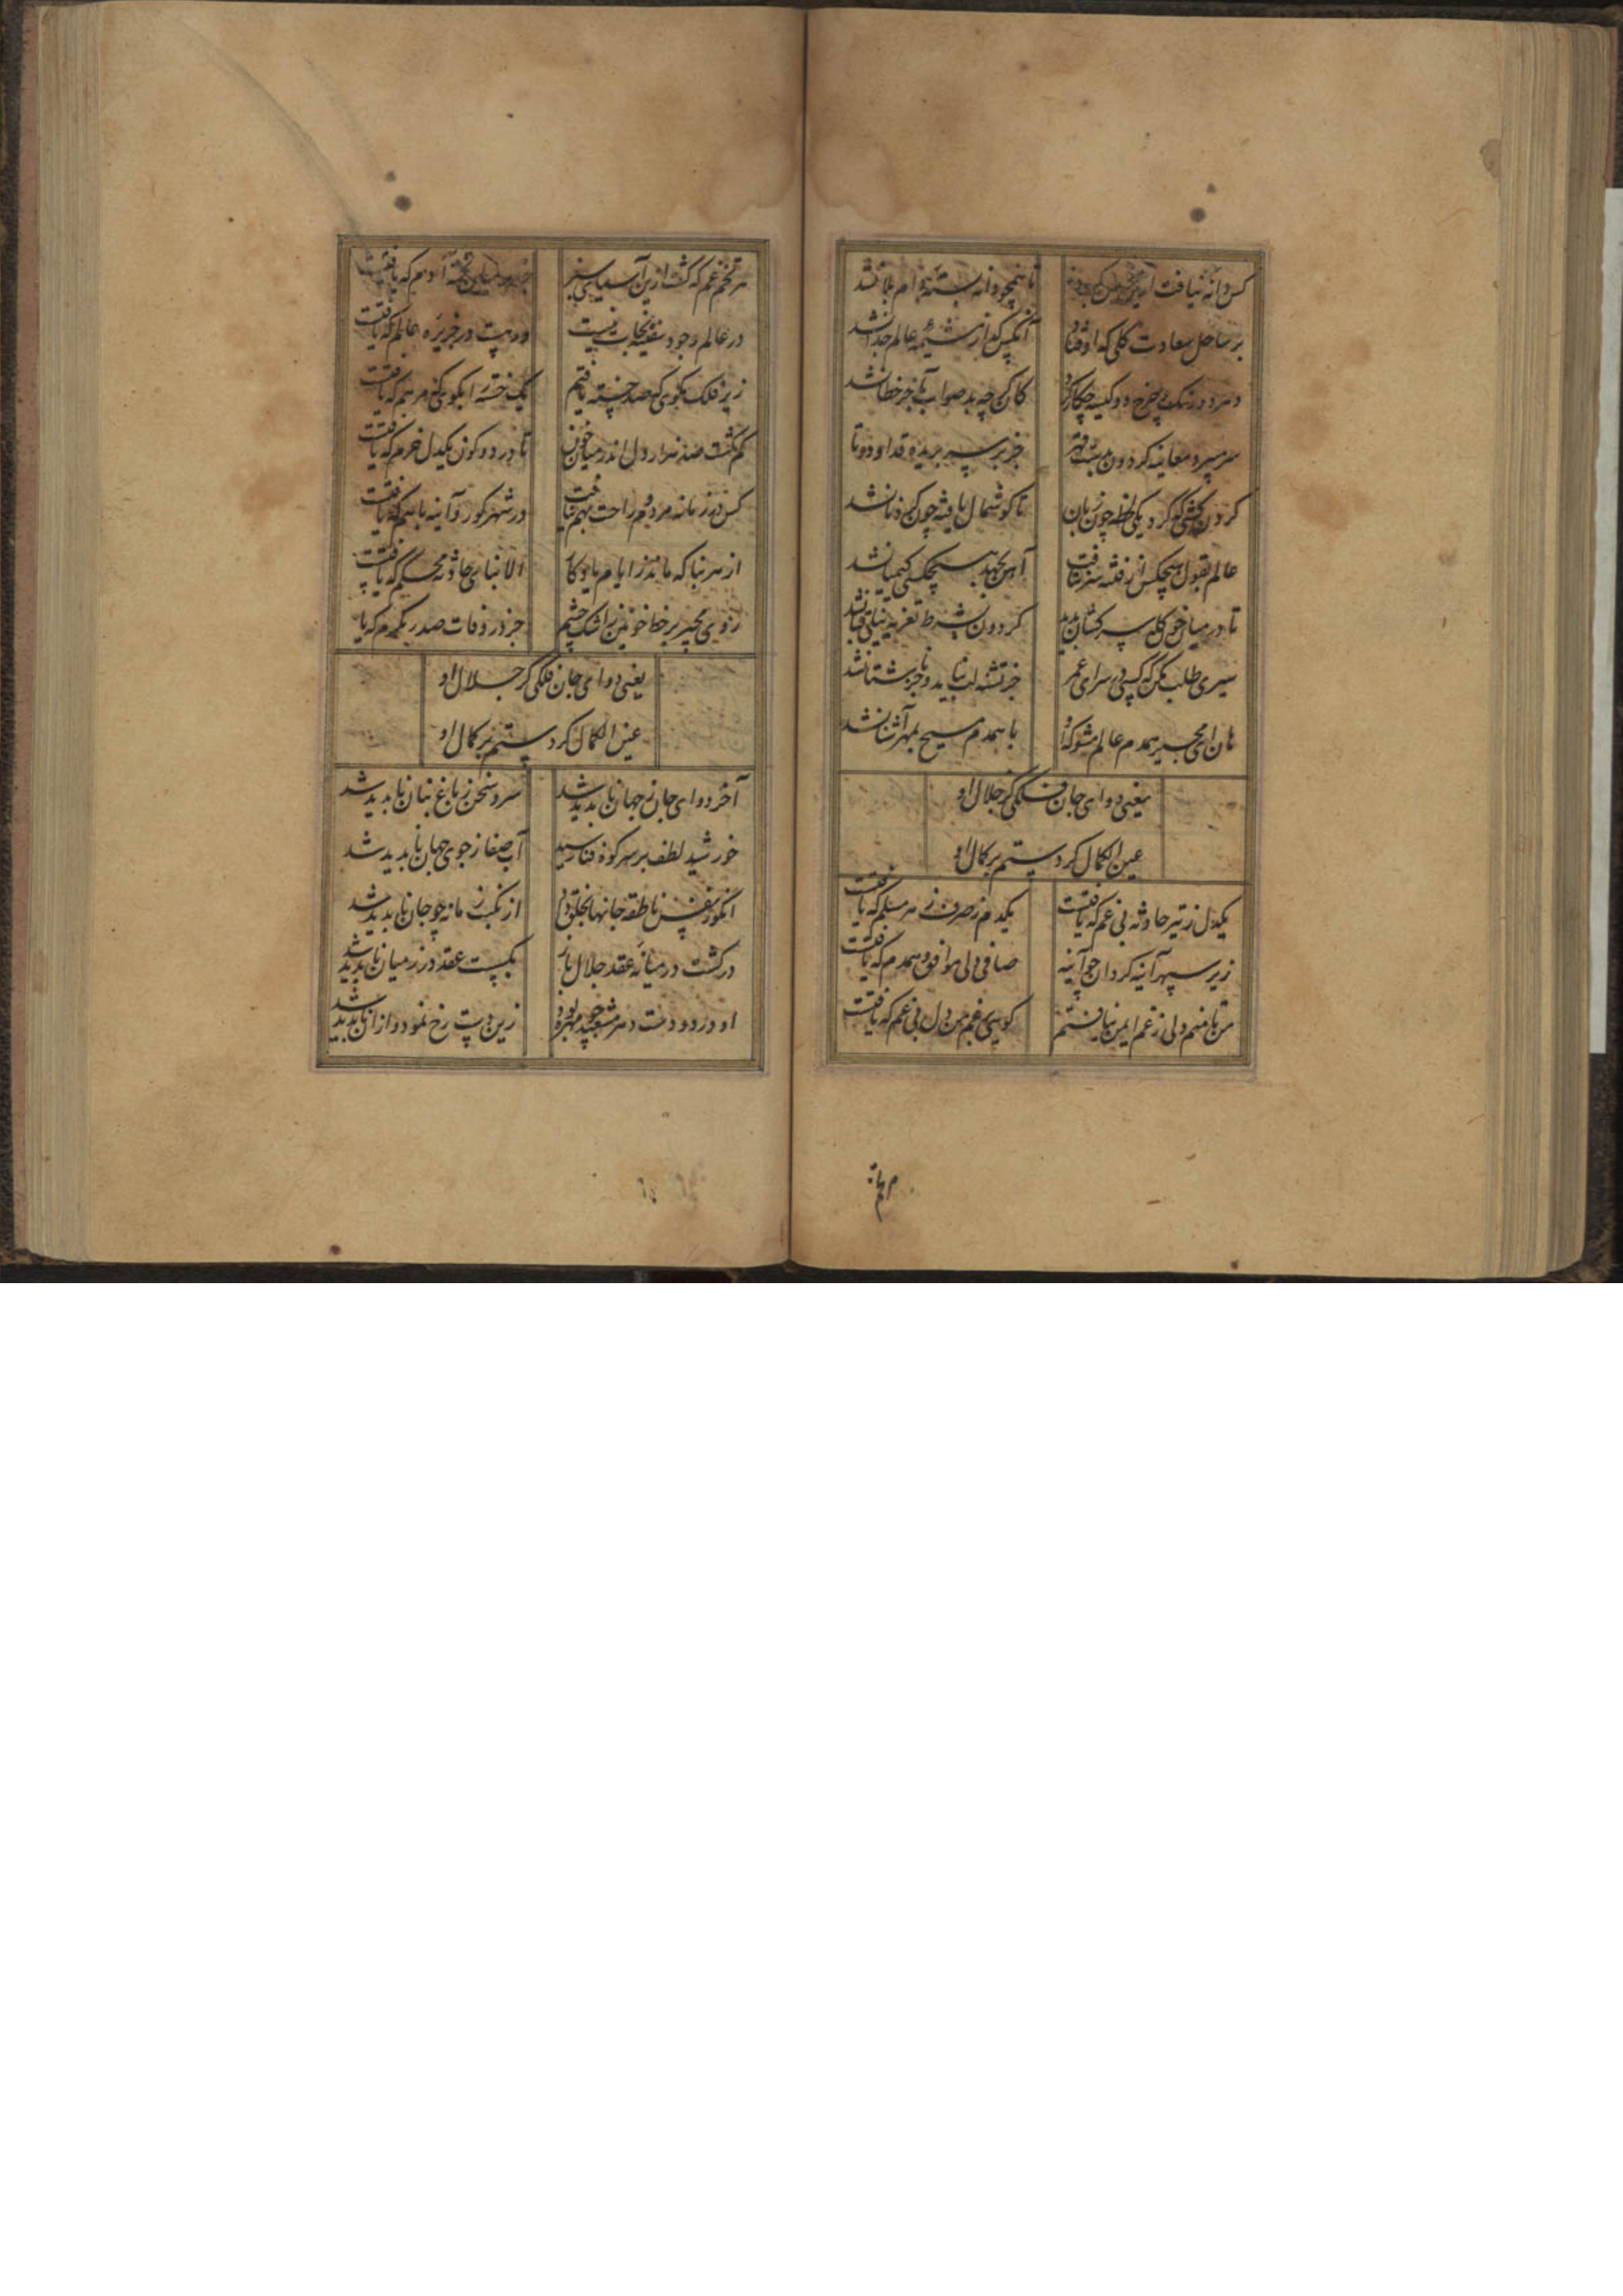 کس دانه نیافت ازین خرمن کبود تا همچو دانه بسته دام بلا نشد
بر ساحل سعادت کلی که اوفتاد آنکس که از مشیمه عالم جدا نشد
دهر دو رنگ بین چرخ دو کیسه چکار کرد کان گرچه بد صواب بآخر خطا نشد
جز بر سپهر بریده قد او دوتا
گردن کشی که کرد یکی لحظه چون زبان تا گوشمال یافته چون نشد
عالم بقول هیچکس از فتنه سر نتافت آهن بجهد هیچکسی کیمیا نشد
تا در میان خوکان سرکشان ندید گردون بشرط تعزیه نیلی قبا نشد
سیری طلب مکن که کسی در سرای عمر جز تشنه لب نیامد و جز ناشتا نشد
هان ای مجیر همدم عالم مشو که او با همدم مسیح بمهر آشنا نشد
یعنی دوای جان فلکی کز جلال او
عین الکمال کرد ستم بر کمال او
یکدل ز تیر حادثه بی غم که یافتست یکدم ز صرف دهر مسلم که یافتست
زیر سپهر آینه کردان چو آینه صافی دلی موافق و همدم که یافتست
من تا منم دلی ز غم ایمن نیافتم کویی بغیر من دل بی غم که یافتست
هر تخم غم که کشت ازین آسیای سبز
در عالم وجود سفینه نجات نیست دریست در جزیره عالم که یافتست
زیر فلک مگوی که صد خسته یافتم یک خسته را بگوی که مرهم که یافتست
گم گشت صد هزار دل اندر میان خون تا در دو کون یکدل خرم که یافتست
کس در زمانه مردم و راحت بهم نیافت در شهر کور و آینه باهم که یافتست
از هر بنا که ماند ز ایام یادگار الا بنای حادثه محکم که یافتست
روی مجیر بر خط خونین ز اشک چشم جز در وفات صدر مکرم که یا
یعنی دوای جان فلکی کز جلال او
عین الکمال کرد ستم بر کمال او
آخر دوای جان ز جهان ناپدید شد سرو سخن ز باغ بنان ناپدید شد
خورشید لطف بر سر کوه فنا رسید آب صفا ز جوی جهان ناپدید شد
آنکو ز نفس ناطقه جانها بخلق داد از نکبت زمانه چو جان ناپدید شد
در گشت در میانه عقد جلال باز بگسست عقد و در ز میان ناپدید شد
او در دو دست دهر مشعبد چو مهره بود زین دست رخ نمود و از آن ناپدید شد